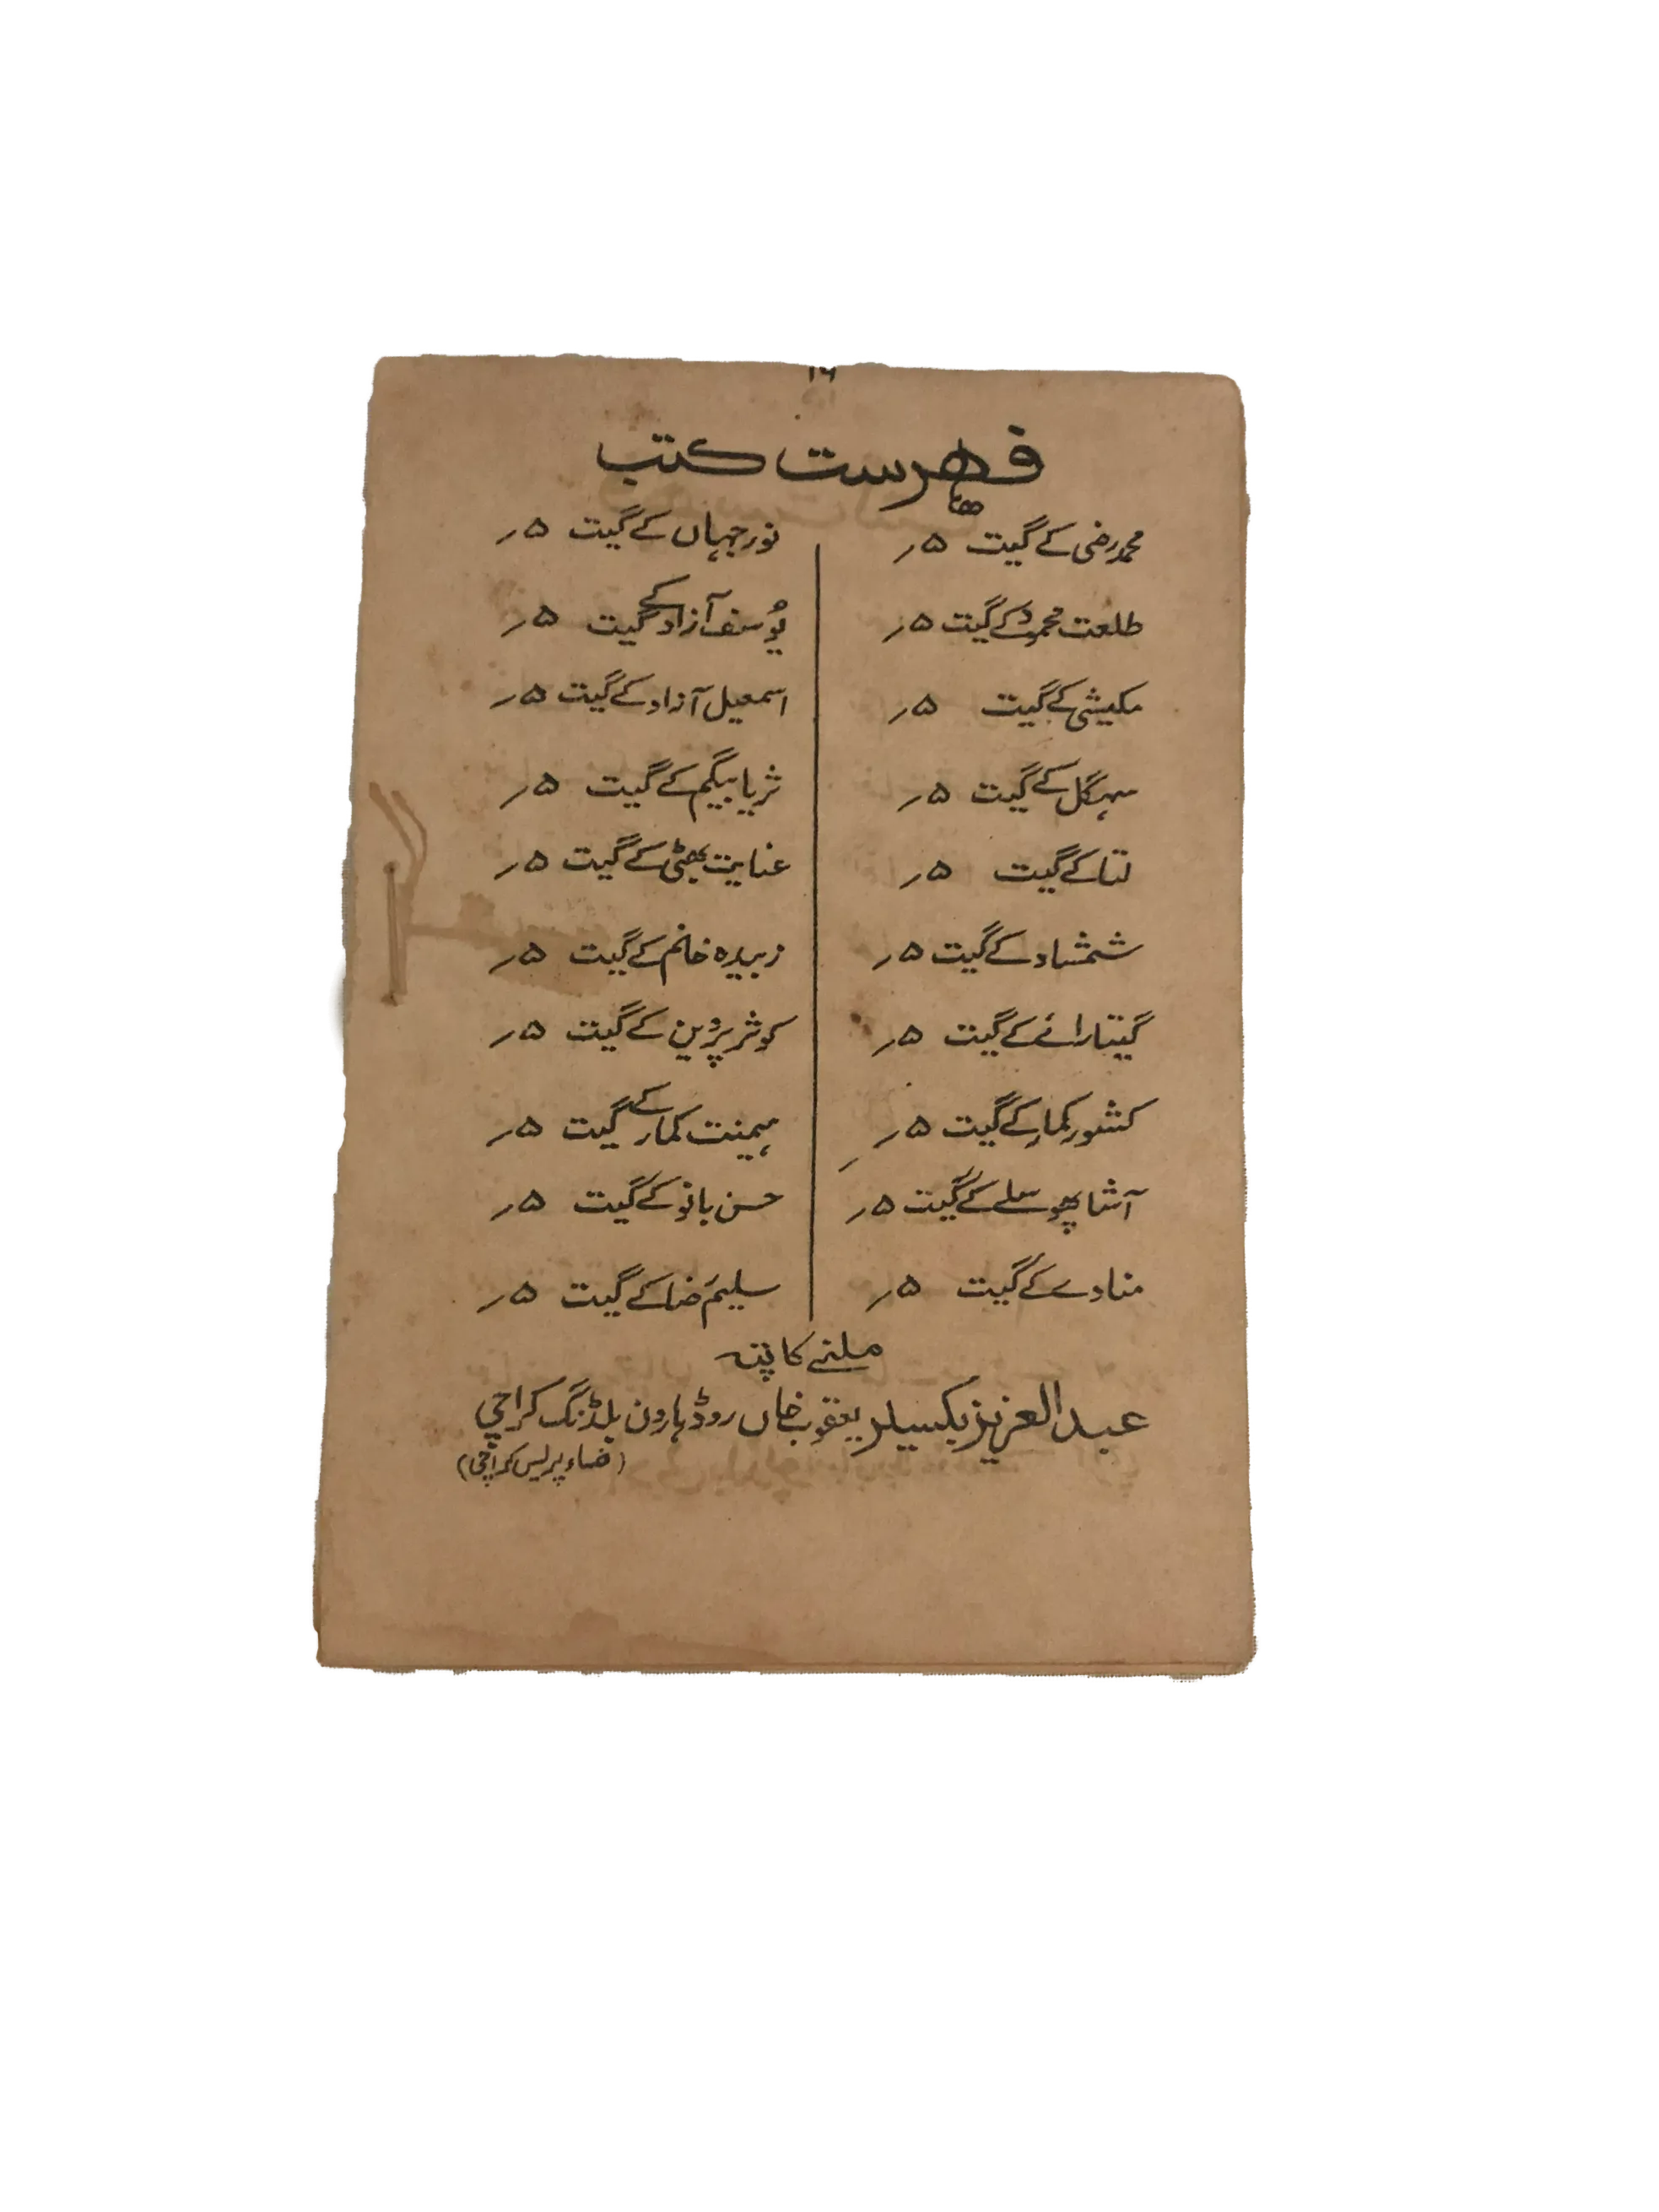 ۱۶
فہرست کتب
محمد رفی کے گیت ۵؍
طلعت محمود کے گیت ۵؍
مکیشی کے گیت ۵؍
سہگل کے گیت ۵؍
لتا کے گیت ۵؍
شمشاد کے گیت ۵؍
گیتا رائے کے گیت ۵؍
کشور کمار کے گیت ۵؍
آشا بھوسلے کے گیت ۵؍
منادے کے گیت ۵؍
نور جہاں کے گیت ۵؍
یوُسف آزاد کے گیت ۵؍
اسمعیل آزاد کے گیت ۵؍
ثریا بیگم کے گیت ۵؍
عنایت بھٹی کے گیت ۵؍
زبیدہ خانم کے گیت ۵؍
کوثر پروین کے گیت ۵؍
ہیمنت کمار کے گیت ۵؍
حسن بانو کے گیت ۵؍
سلیم رضا کے گیت ۵؍
ملنے کا پتہ
عبدالعزیز بکسیلر یعقوب خاں روڈ ہارون بلڈنگ کراچی
(ضیاء پریس کراچی)